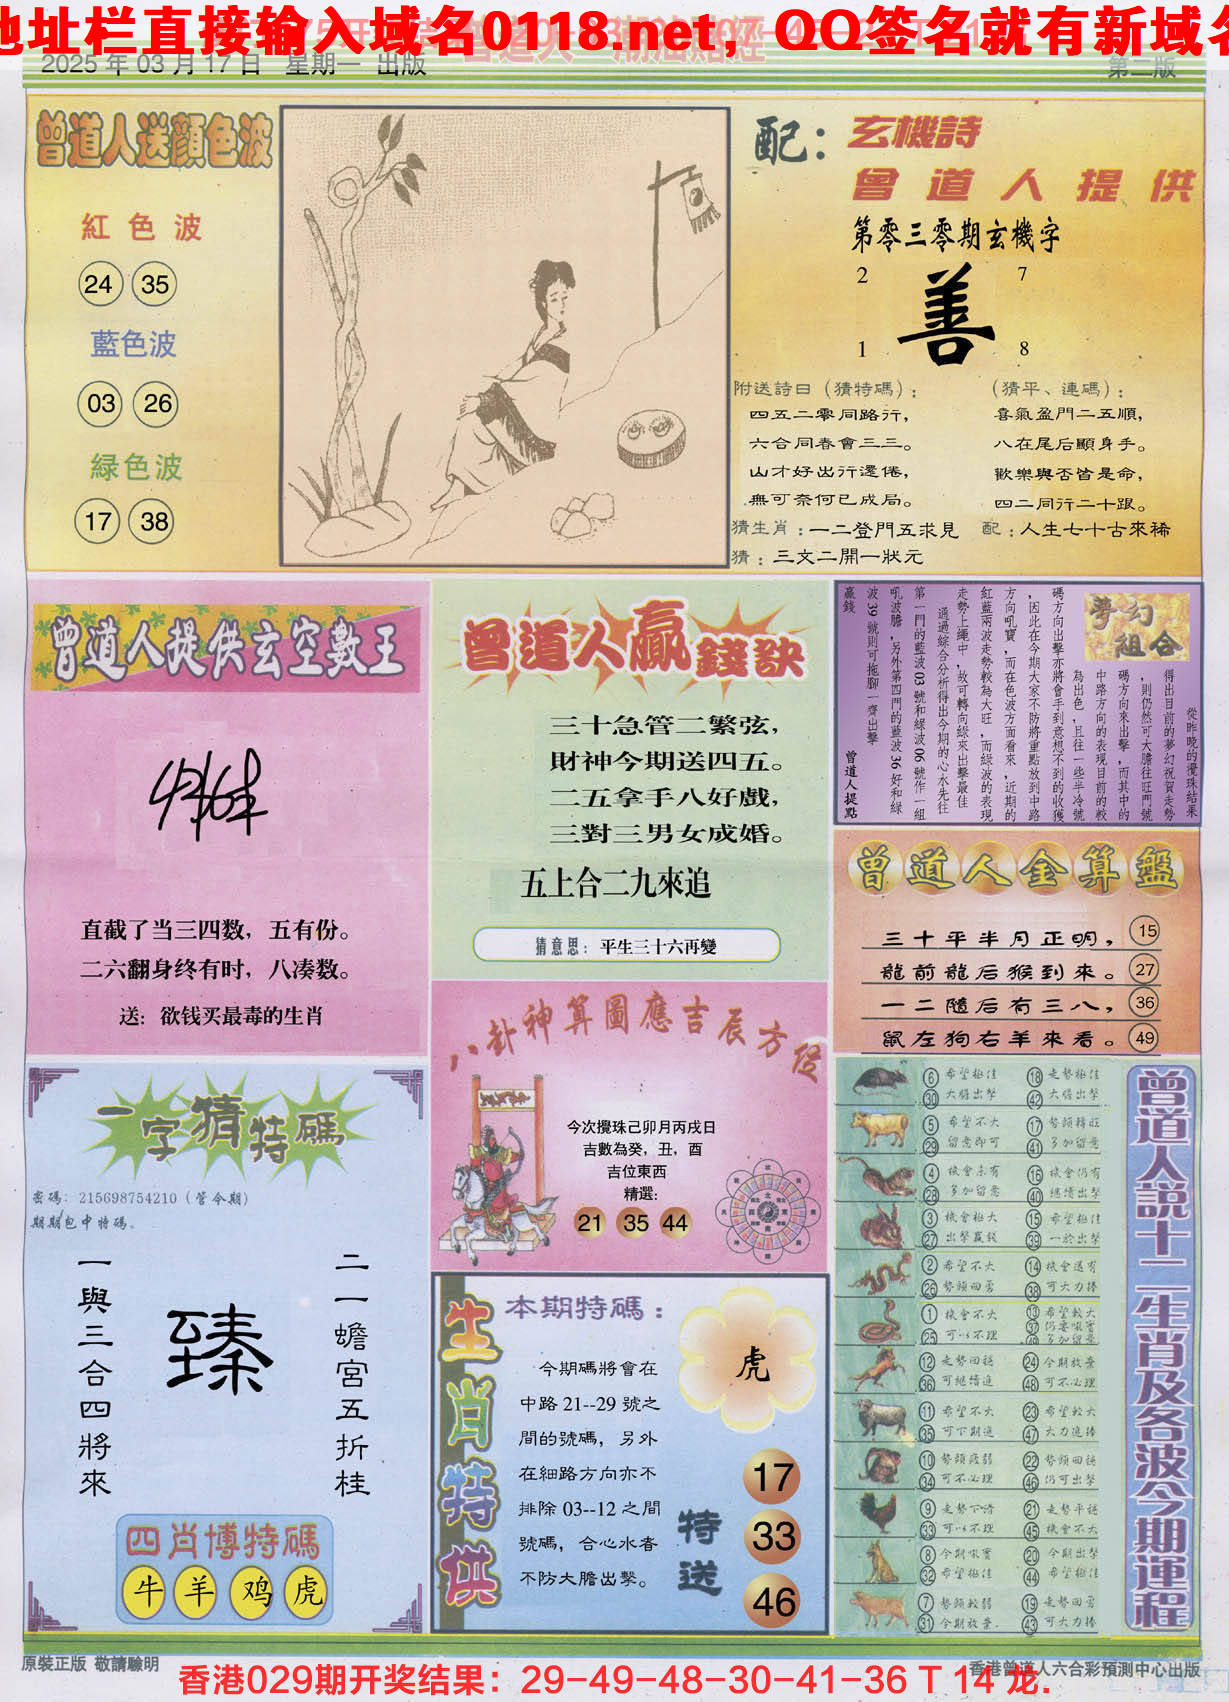 地址栏直接输入域名0118.net，QQ签名就有新域名
2025 年 03 月 17 日　星期一　出版
第二版
曾道人送顏色波
紅色波
24 35
藍色波
03 26
緑色波
17 38
配：
玄機詩
曾道人提供
第零三零期玄機字
2 7
善
1 8
附送詩曰（猜特碼）：
四五二零同路行，
六合同春會三三。
山才好出行還倦，
無可奈何已成局。
（猜平、連碼）：
喜氣盈門二五順，
八在尾后顯身手。
歡樂與否皆是命，
四二同行二十跟。
猜生肖：一二登門五求見
配：人生七十古來稀
猜：三文二開一狀元
曾道人提供玄空數王
直截了当三四数，五有份。
二六翻身终有时，八凑数。
送：欲钱买最毒的生肖
曾道人贏錢訣
三十急管二繁弦，
財神今期送四五。
二五拿手八好戲，
三對三男女成婚。
五上合二九來追
猜意思：平生三十六再變
夢幻組合
從昨晚的攪珠結果
得出目前的夢幻祝賀走勢
，則仍然可大膽往旺門號
碼方向來出擊，而其中的
中路方向的表現目前的較
為出色，且往一些半冷號
碼方向出擊亦將會手到意想不到的收獲
，因此在今期大家不防將重點放到中路
方向吼寶，而在色波方面看來，近期的
紅藍兩波走勢較為大旺，而綠波的表現
走勢上繩中，故可轉向綠來出擊最佳
通過綜合分析得出今期的心水先往
第一門的藍波 03 號和綠波 06 號作一組
吼波膽，另外第四門的藍波 36 好和綠
波 39 號則可拖腳一齊出擊
贏錢
曾道人提點
曾道人金算盤
三十平半月正明， 15
龍前龍后猴到來。 27
一二隨后有三八， 36
鼠左狗右羊來看。 49
八卦神算圖應吉辰方位
今次攪珠己卯月丙戌日
吉數為癸，丑，酉
吉位東西
精選：
21 35 44
一字猜特碼
密碼：215698754210（管令期）
期期包中特碼。
二一蟾宮五折桂
臻
一與三合四將來
四肖博特碼
牛 羊 鸡 虎
生肖特供
本期特碼：
虎
今期碼將會在
中路 21--29 號之
間的號碼，另外
在細路方向亦不
排除 03--12 之間
號碼，合心水者
不防大膽出擊。
特送
17
33
46
曾道人說十二生肖及各波今期運程
6 希望極佳 18 走勢極佳
30 大膽出擊 42 大膽出擊
5 希望不大 17 勢頭轉旺
29 留意即可 41 多加留意
4 機會未有 16 機會仍有
28 多加留意 40 繼續出擊
3 機會極大 15 希望極佳
27 出擊贏錢 39 一於出擊
2 希望不大 14 機會還有
26 勢頭回勇 38 可大力捧
1 機會不大 13 希望較大
25 可以不理 37
49 多加留意
12 走勢回穩 24 今期放棄
36 可繼續追 48 可不必理
11 希望不大 23 希望較大
35 可下期追 47 大力追捧
10 勢頭疲弱 22 勢頭回穩
34 可不必理 46 仍可出擊
9 走勢下滑 21 走勢平穩
33 可以不理 45 機會不大
8 今期吼實 20 今期出擊
32 希望極佳 44 希望極佳
7 勢頭較弱 19 走勢回勇
31 今期放棄. 43 可大力捧
原裝正版 敬請驗明
香港曾道人六合彩預測中心出版
香港029期开奖结果：29-49-48-30-41-36 T 14 龙.